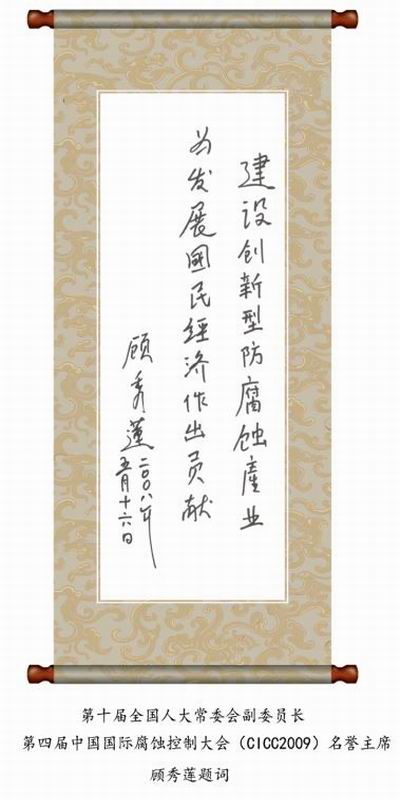 建设创新型防腐蚀產业
为发展國民经济作出贡献
顾秀莲
二〇〇八年
五月十六日
第十届全国人大常委会副委员长
第四届中国国际腐蚀控制大会（CICC2009）名誉主席
顾秀莲题词